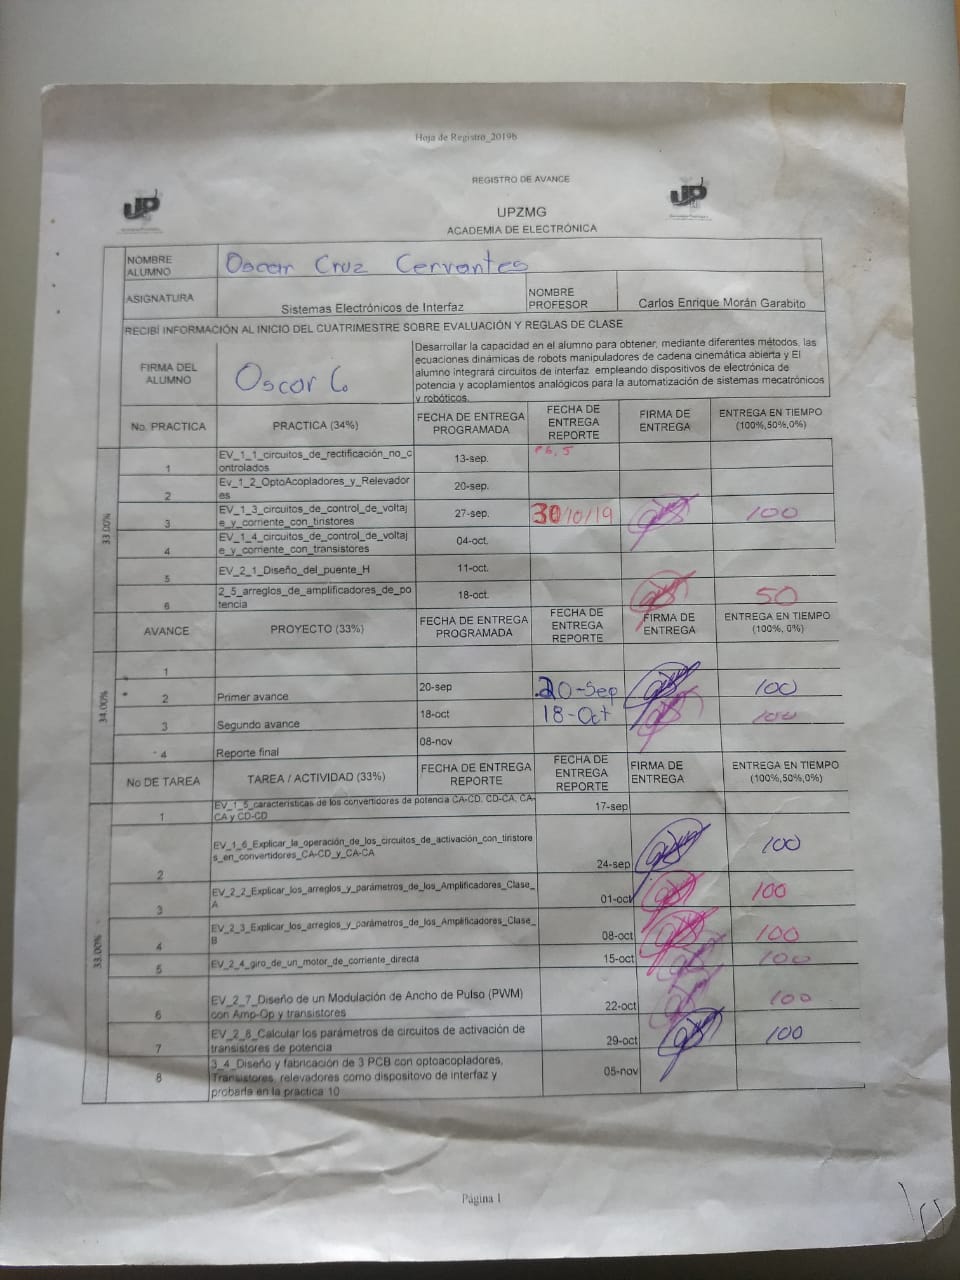 Hoja de Registro_2019b
REGISTRO DE AVANCE
UP
UP
UPZMG
ACADEMIA DE ELECTRÓNICA
NOMBRE ALUMNO
Oscar Cruz Cervantes
ASIGNATURA
Sistemas Electrónicos de Interfaz
NOMBRE PROFESOR
Carlos Enrique Morán Garabito
RECIBÍ INFORMACIÓN AL INICIO DEL CUATRIMESTRE SOBRE EVALUACIÓN Y REGLAS DE CLASE
FIRMA DEL ALUMNO
Oscar C.
Desarrollar la capacidad en el alumno para obtener, mediante diferentes métodos, las
ecuaciones dinámicas de robots manipuladores de cadena cinemática abierta y El
alumno integrará circuitos de interfaz empleando dispositivos de electrónica de
potencia y acoplamientos analógicos para la automatización de sistemas mecatrónicos
y robóticos.
No. PRACTICA
PRACTICA (34%)
FECHA DE ENTREGA PROGRAMADA
FECHA DE ENTREGA REPORTE
FIRMA DE ENTREGA
ENTREGA EN TIEMPO (100%,50%,0%)
33.00%
1 EV_1_1_circuitos_de_rectificación_no_c
ontrolados 13-sep.
2 Ev_1_2_OptoAcopladores_y_Relevador
es 20-sep.
3 EV_1_3_circuitos_de_control_de_voltaj
e_y_corriente_con_tiristores 27-sep. 30/10/19 100
4 EV_1_4_circuitos_de_control_de_voltaj
e_y_corriente_con_transistores 04-oct.
5 EV_2_1_Diseño_del_puente_H 11-oct.
6 2_5_arreglos_de_amplificadores_de_po
tencia 18-oct. 50
AVANCE
PROYECTO (33%)
FECHA DE ENTREGA PROGRAMADA
FECHA DE ENTREGA REPORTE
FIRMA DE ENTREGA
ENTREGA EN TIEMPO (100%, 0%)
34.00%
1
2 Primer avance 20-sep 20-Sep 100
3 Segundo avance 18-oct 18-Oct 100
4 Reporte final 08-nov
No DE TAREA
TAREA / ACTIVIDAD (33%)
FECHA DE ENTREGA REPORTE
FECHA DE ENTREGA REPORTE
FIRMA DE ENTREGA
ENTREGA EN TIEMPO (100%,50%,0%)
33.00%
1 EV_1_5_características de los convertidores de potencia CA-CD, CD-CA, CA-
CA y CD-CD 17-sep
2 EV_1_6_Explicar_la_operación_de_los_circuitos_de_activación_con_tiristor
es_en_convertidores_CA-CD_y_CA-CA 24-sep 100
3 EV_2_2_Explicar_los_arreglos_y_parámetros_de_los_Amplificadores_Clase_
A 01-oct 100
4 EV_2_3_Explicar_los_arreglos_y_parámetros_de_los_Amplificadores_Clase_
B 08-oct 100
5 EV_2_4_giro_de_un_motor_de_corriente_directa 15-oct 100
6 EV_2_7_Diseño de un Modulación de Ancho de Pulso (PWM)
con Amp-Op y transistores 22-oct 100
7 EV_2_8_Calcular los parámetros de circuitos de activación de
transistores de potencia 29-oct 100
8 3_4_Diseño y fabricación de 3 PCB con optoacopladores,
Transistores, relevadores como dispositovo de interfaz y
probarla en la practica 10 05-nov
Página 1